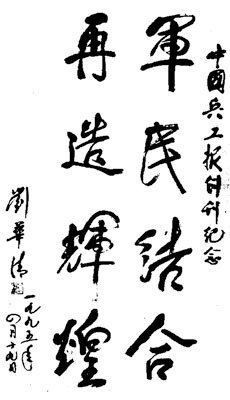 中國兵工報創刊纪念
軍民結合
再造輝煌
劉華清
一九九五年
四月十九日